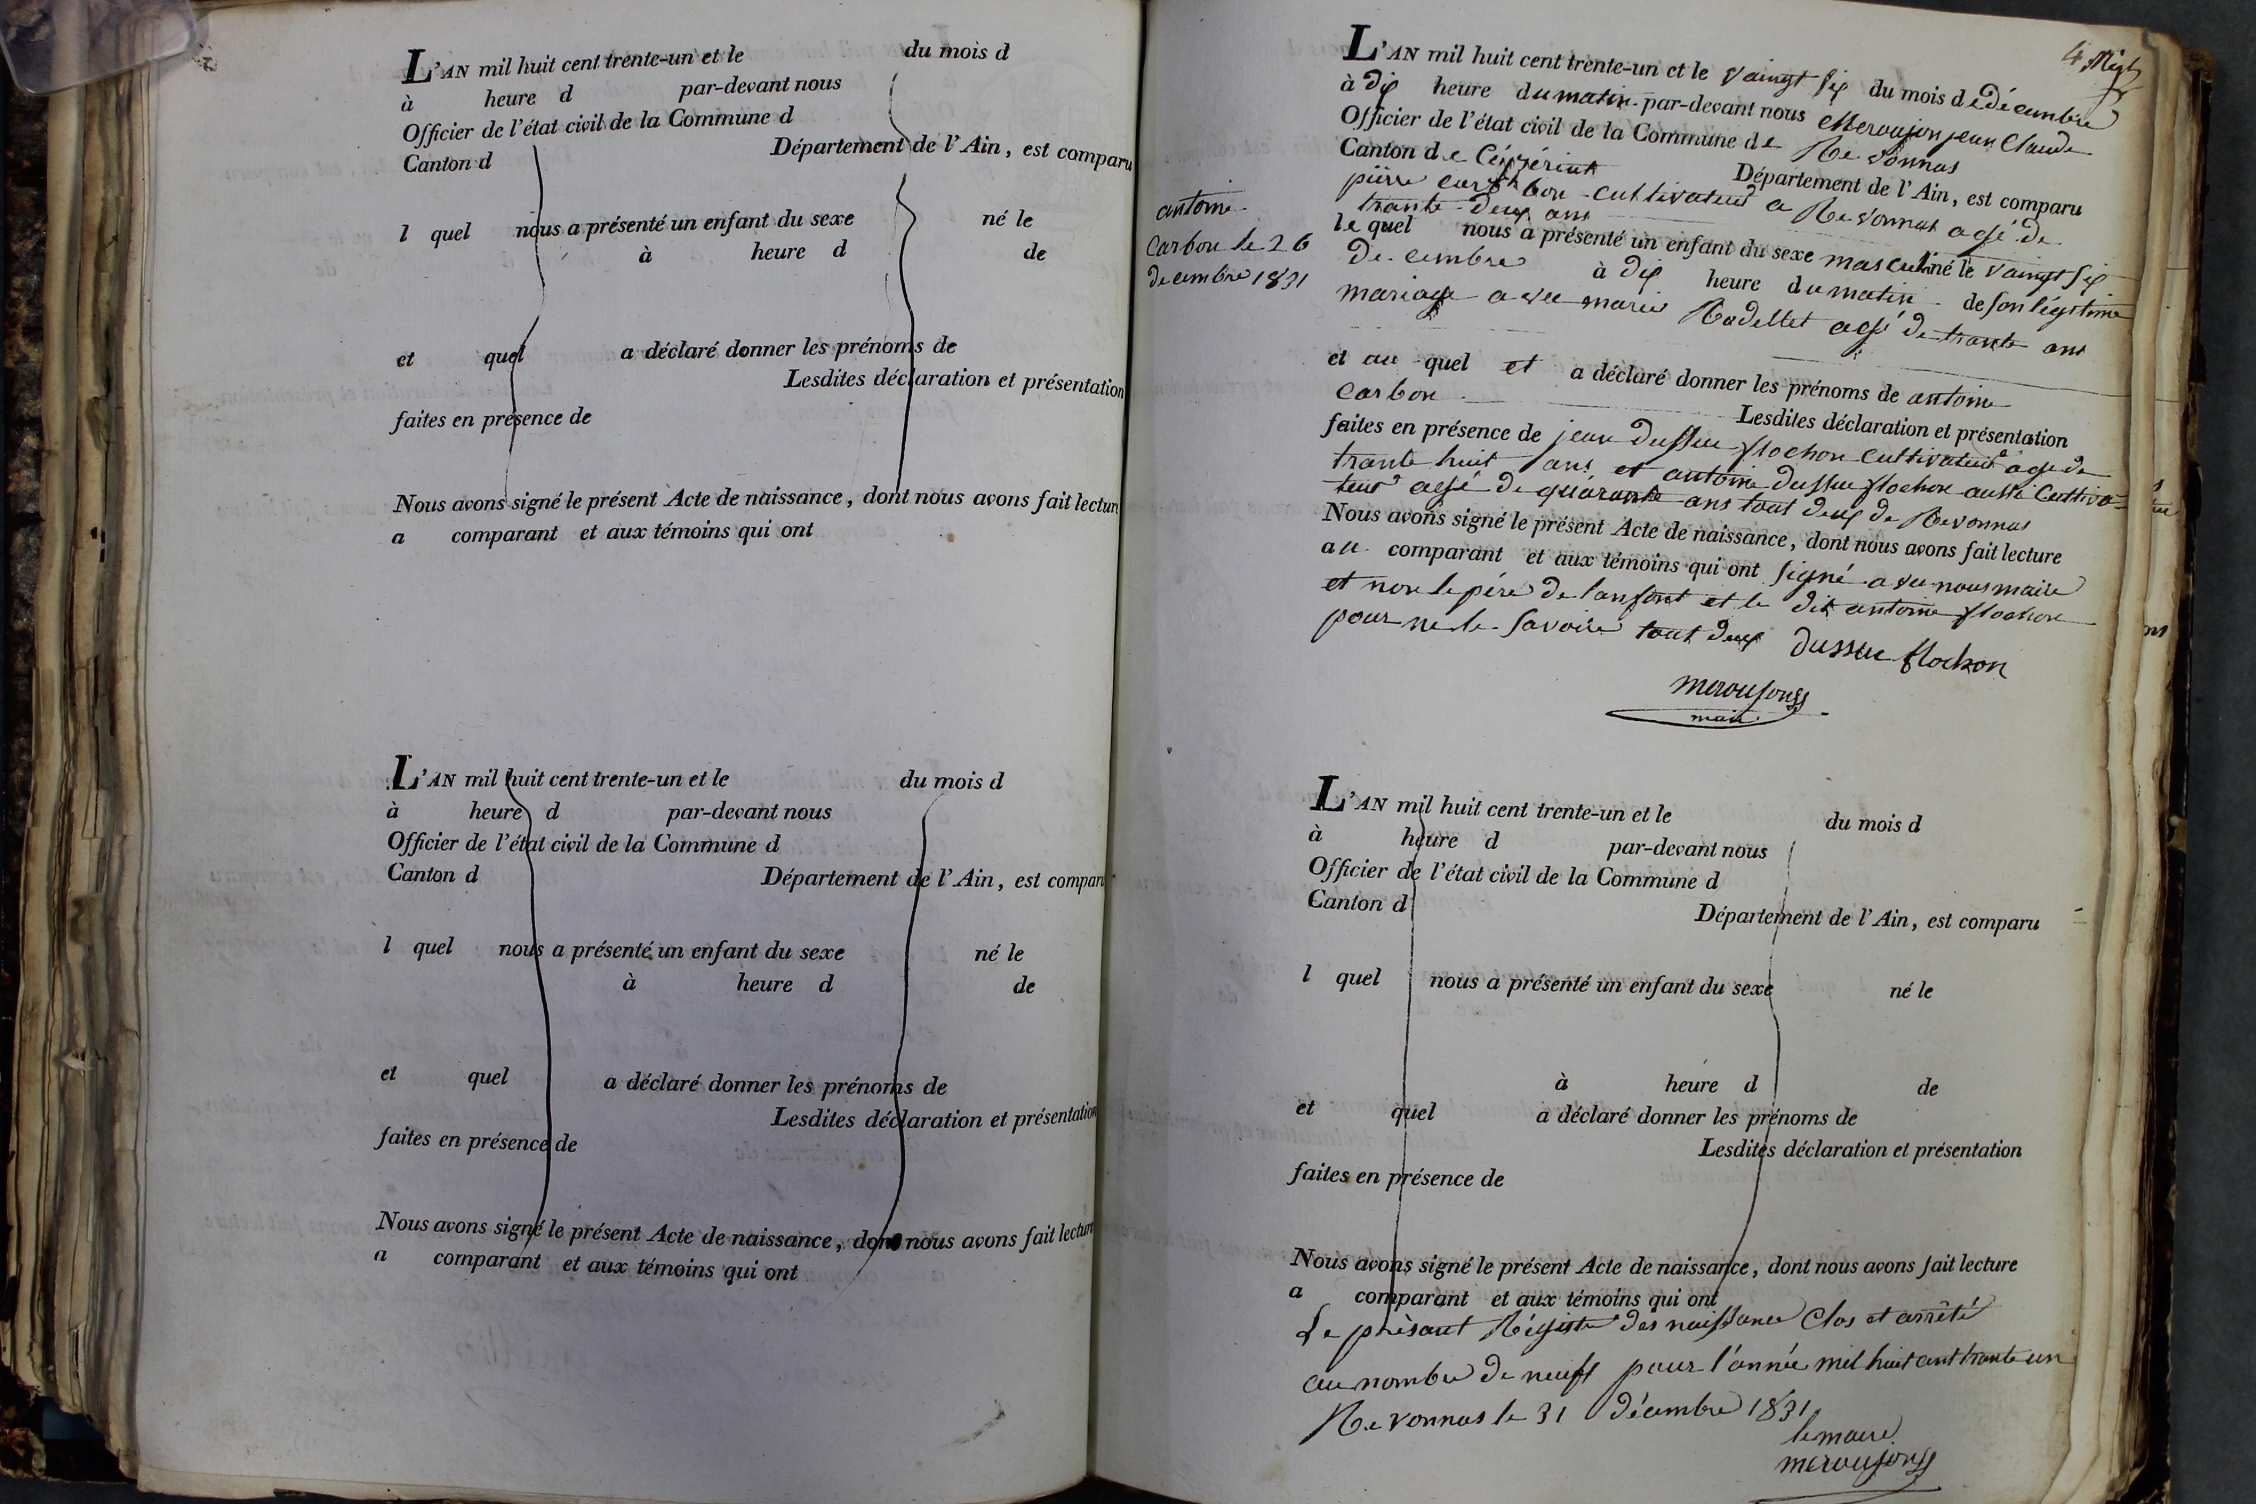 L'AN mil huit cent trente-un et le du mois d
à heure d par-devant nous
Officier de l'état civil de la Commune d
Canton d Département de l'Ain, est comparu
l quel nous a présenté un enfant du sexe né le
à heure d de
et quel a déclaré donner les prénoms de
Lesdites déclaration et présentation
faites en présence de
Nous avons signé le présent Acte de naissance, dont nous avons fait lectur
a comparant et aux témoins qui ont
L'AN mil huit cent trente-un et le du mois d
à heure d par-devant nous
Officier de l'état civil de la Commune d
Canton d Département de l'Ain, est comparu
l quel nous a présenté un enfant du sexe né le
à heure d de
et quel a déclaré donner les prénoms de
Lesdites déclaration et présentation
faites en présence de
Nous avons signé le présent Acte de naissance, dont nous avons fait lectur
a comparant et aux témoins qui ont
L'AN mil huit cent trente-un et le vaingt six du mois de décembre
à dix heure du matin par-devant nous Meroujon jean Claude
Officier de l'état civil de la Commune de Revonnas
Canton de Céyzériat Département de l'Ain, est comparu
pierre carbon cultivateur a Revonnas agé de
trante deux ans
le quel nous a présenté un enfant du sexe masculin né le vaingt six
decembre à dix heure du matin de son légitime
mariage avec marie Radellet agé de trante ans
et au quel et a déclaré donner les prénoms de antoine
carbon
Lesdites déclaration et présentation
faites en présence de jean dussuc flochon cultivateur agé de
trante huit ans et antoine dussuc flochon aussi cultiva-
teur agé de quarante ans tout deux de Revonnas
Nous avons signé le présent Acte de naissance, dont nous avons fait lecture
au comparant et aux témoins qui ont signé avec nous maire
et non le père de lanfant et le dit antoine flochon
pour ne le savoire tout deux dussuc flochon
meroujon
maire
antoine
carbon le 26
decembre 1831
L'AN mil huit cent trente-un et le du mois d
à heure d par-devant nous
Officier de l'état civil de la Commune d
Canton d Département de l'Ain, est comparu
l quel nous a présenté un enfant du sexe né le
à heure d de
et quel a déclaré donner les prénoms de
Lesdites déclaration et présentation
faites en présence de
Nous avons signé le présent Acte de naissance, dont nous avons fait lecture
a comparant et aux témoins qui ont
Le présant Régistre des naissance Clos et arrêté
au nombre de neuf pour l'année mil huit cent trante un
Revonnas le 31 décembre 1831
le maire
meroujon